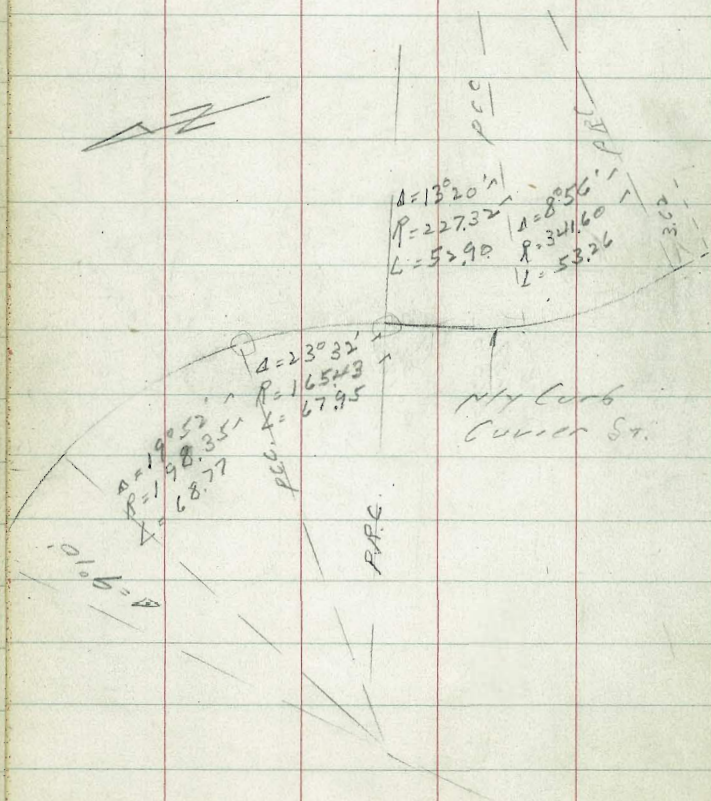 N
PCC
PRC
Δ=13°20'
R=227.32'
L=52.90
Δ=8°56'
R=341.60
L=53.26
Δ=23°32'
R=165.43
L=67.95
Nly Curb
Δ=19°52'
R=198.35'
L=68.77
PCC
P.R.C.
Δ=9°10'